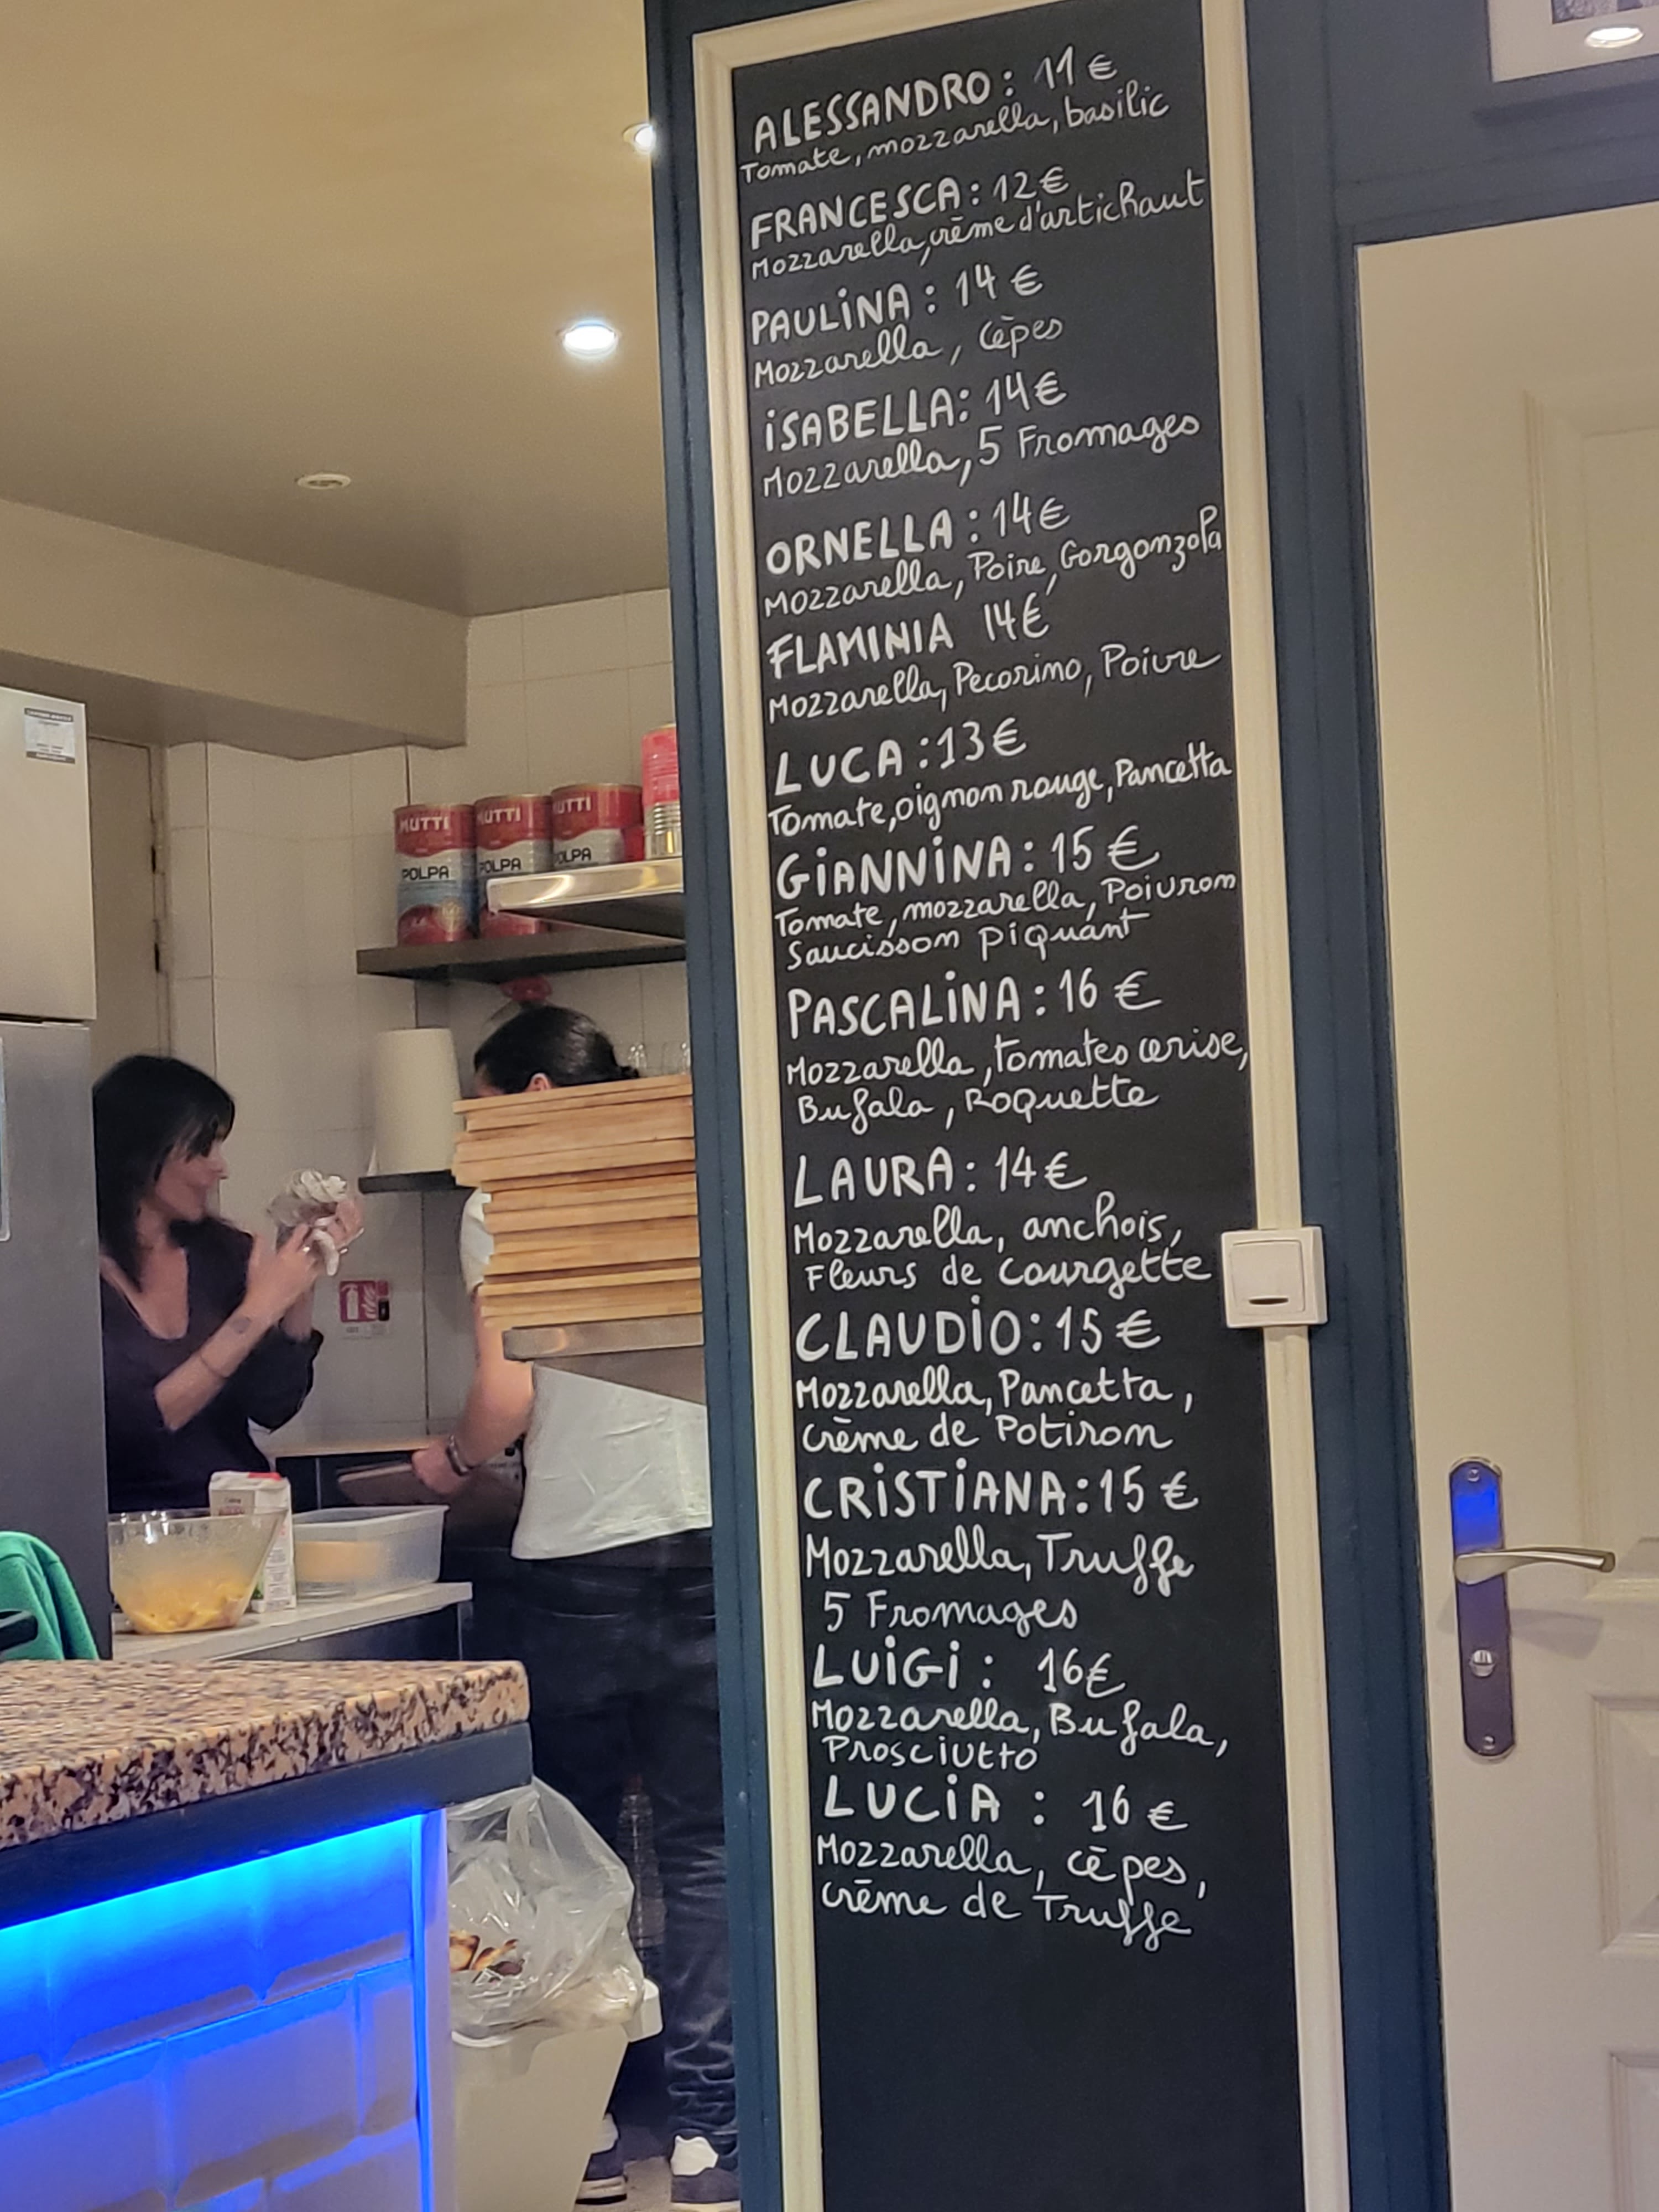 ALESSANDRO: 11€
Tomate, mozzarella, basilic
FRANCESCA: 12€
Mozzarella, crème d'artichaut
PAULINA: 14€
Mozzarella, Cèpes
ISABELLA: 14€
Mozzarella, 5 Fromages
ORNELLA: 14€
Mozzarella, Poire, Gorgonzola
FLAMINIA 14€
Mozzarella, Pecorino, Poivre
LUCA: 13€
Tomate, oignon rouge, Pancetta
GIANNINA: 15€
Tomate, mozzarella, Poivron
Saucisson piquant
PASCALINA: 16€
Mozzarella, tomates cerise,
Bufala, Roquette
LAURA: 14€
Mozzarella, anchois,
Fleurs de courgette
CLAUDIO: 15€
Mozzarella, Pancetta,
crème de Potiron
CRISTIANA: 15€
Mozzarella, Truffe
5 Fromages
LUIGI: 16€
Mozzarella, Bufala,
Prosciutto
LUCIA: 16€
Mozzarella, cèpes,
crème de Truffe
MUTTI
POLPA
MUTTI
POLPA
MUTTI
POLPA